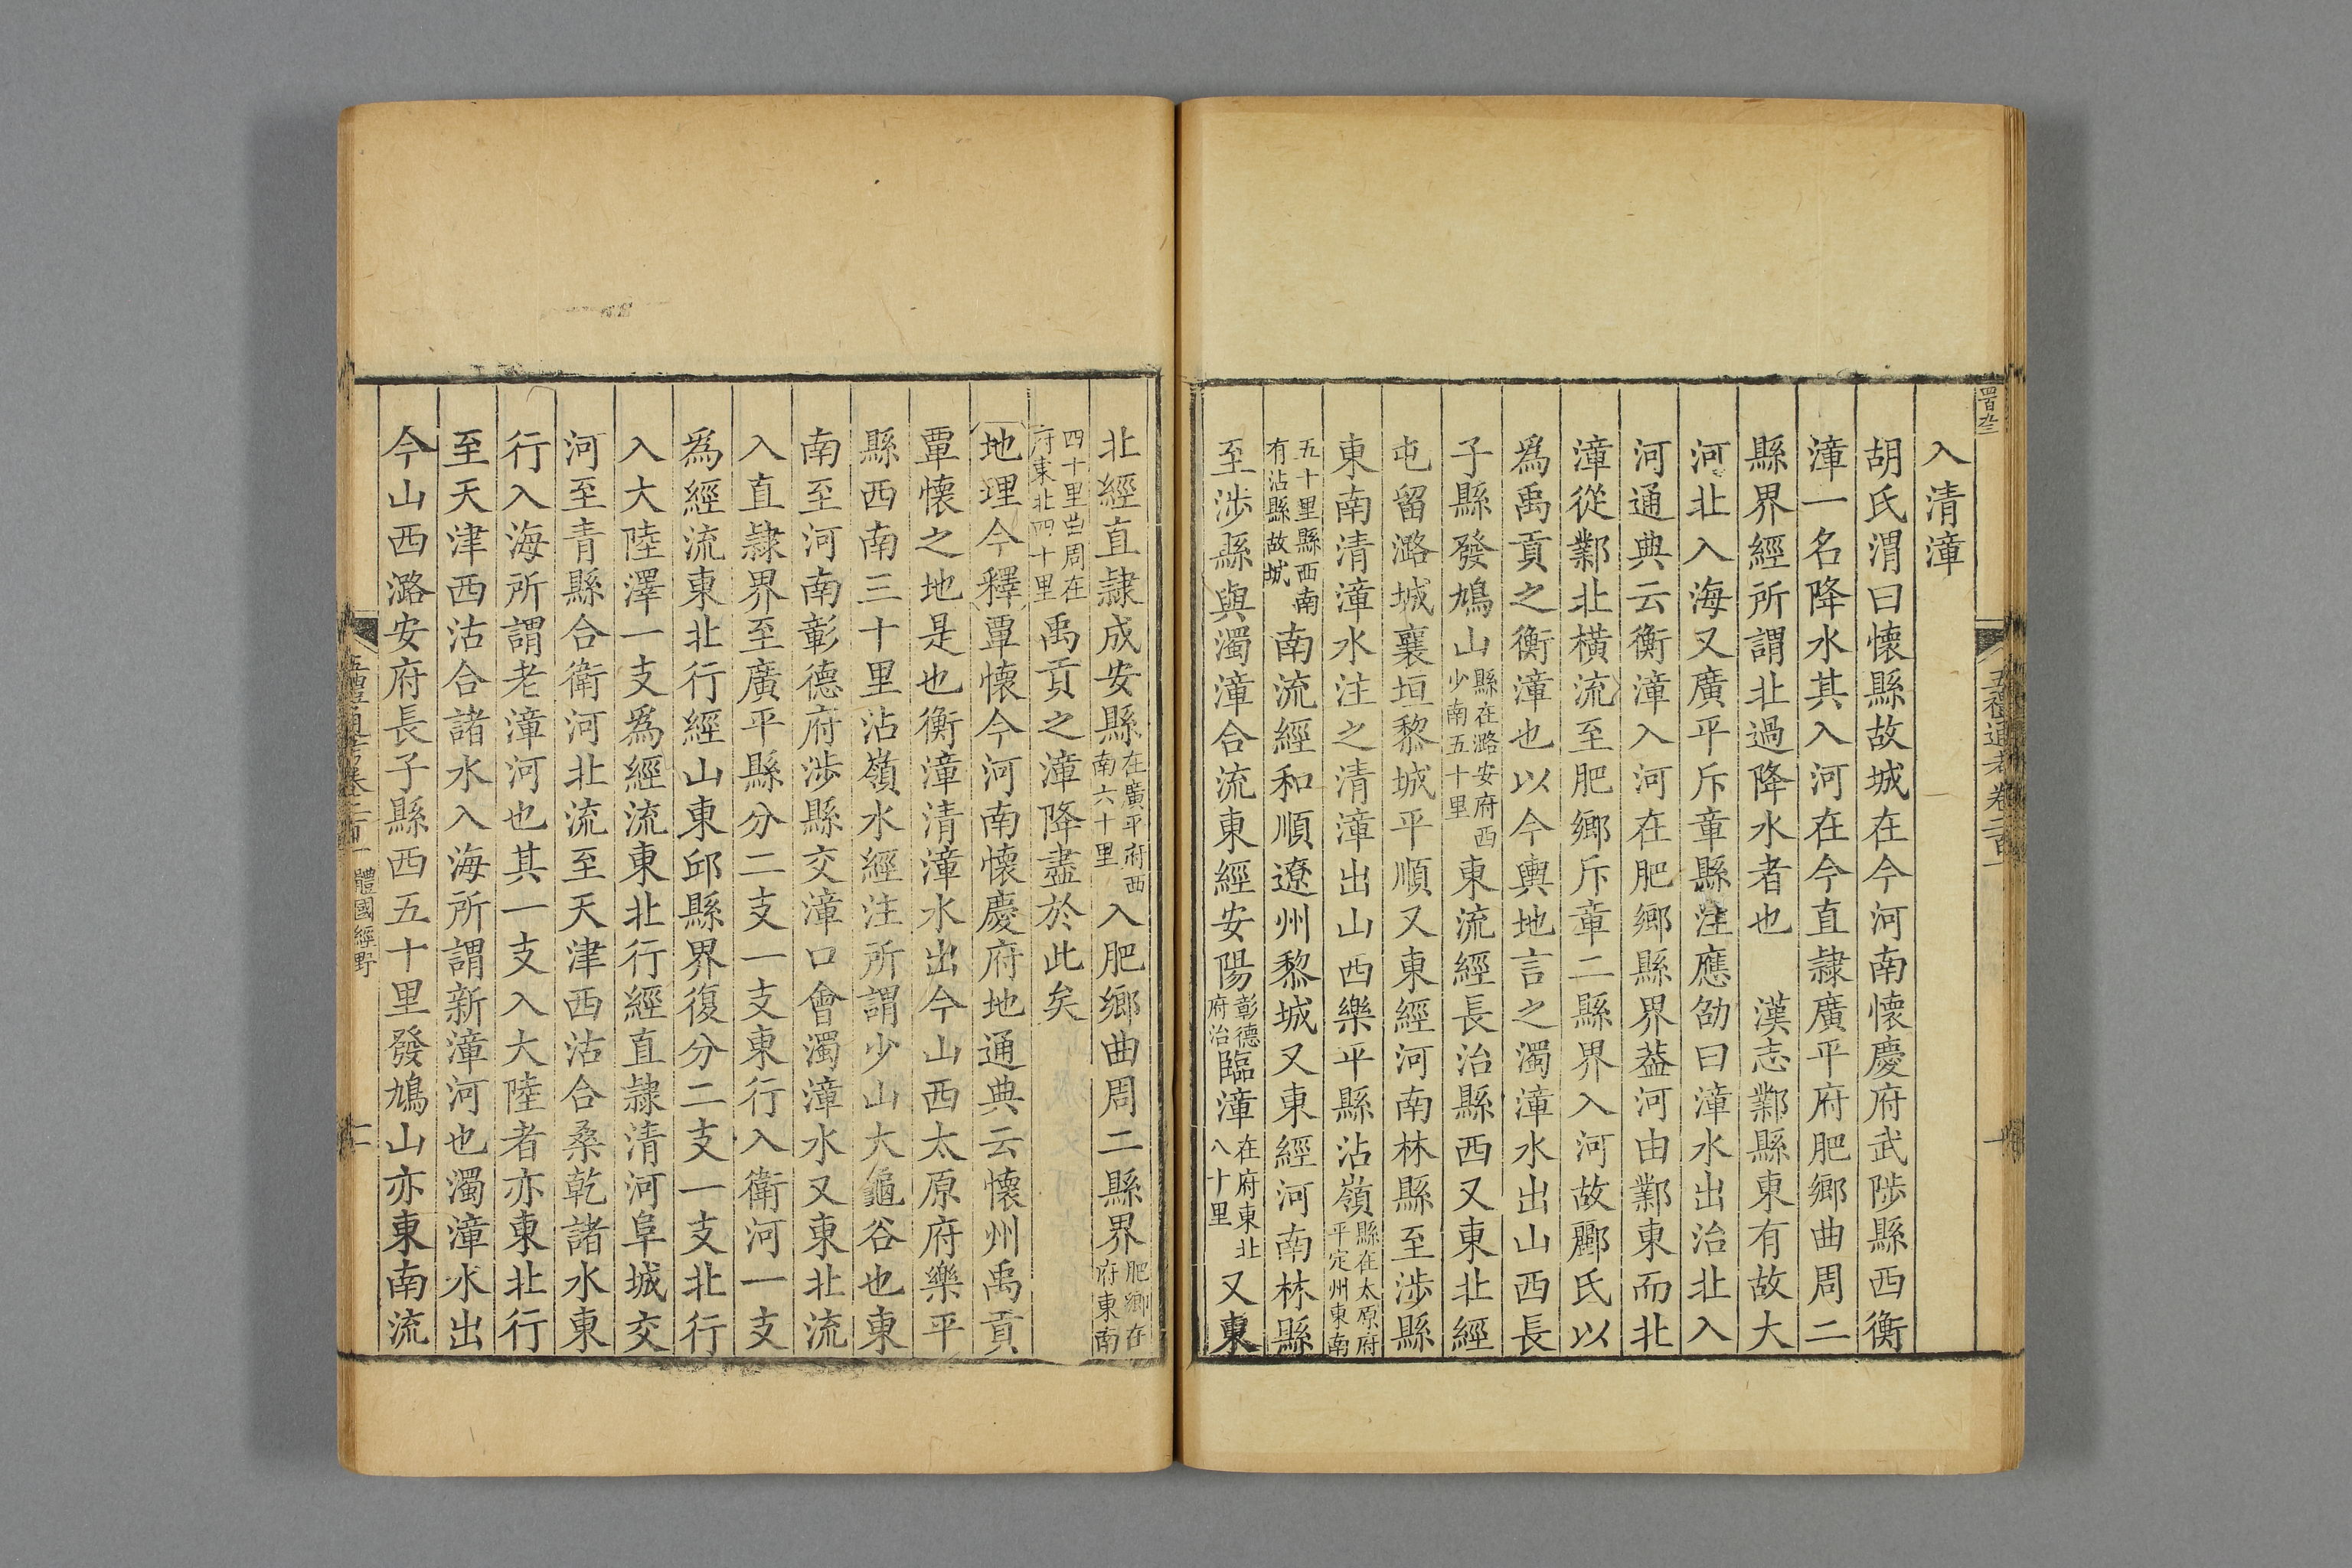 入清漳
胡氏渭曰懷縣故城在今河南懷慶府武陟縣西衡
漳一名降水其入河在今直隸廣平府肥鄉曲周二
縣界經所謂北過降水者也 漢志鄴縣東有故大
河北入海又廣平斥章縣注應劭曰漳水出治北入
河通典云衡漳入河在肥鄉縣界葢河由鄴東而北
漳從鄴北橫流至肥鄉斥章二縣界入河故酈氏以
爲禹貢之衡漳也以今輿地言之濁漳水出山西長
子縣發鳩山縣在潞安府西少南五十里東流經長治縣西又東北經
屯留潞城襄垣黎城平順又東經河南林縣至涉縣
東南清漳水注之清漳出山西樂平縣沾嶺縣在太原府平定州東南
五十里縣西南有沾縣故城南流經和順遼州黎城又東經河南林縣
至涉縣與濁漳合流東經安陽彰德府治臨漳在府東北八十里又東
北經直隸成安縣在廣平府西南六十里入肥鄉曲周二縣界肥鄉在府東南
四十里曲周在府東北四十里禹貢之漳降盡於此矣
地理今釋覃懷今河南懷慶府地通典云懷州禹貢
覃懷之地是也衡漳清漳水出今山西太原府樂平
縣西南三十里沾嶺水經注所謂少山大黽谷也東
南至河南彰德府涉縣交漳口會濁漳水又東北流
入直隸界至廣平縣分二支一支東行入衛河一支
爲經流東北行經山東邱縣界復分二支一支北行
入大陸澤一支爲經流東北行經直隸清河阜城交
河至青縣合衛河北流至天津西沽合桑乾諸水東
行入海所謂老漳河也其一支入大陸者亦東北行
至天津西沽合諸水入海所謂新漳河也濁漳水出
今山西潞安府長子縣西五十里發鳩山亦東南流
五禮通考卷二百一 體國經野 二